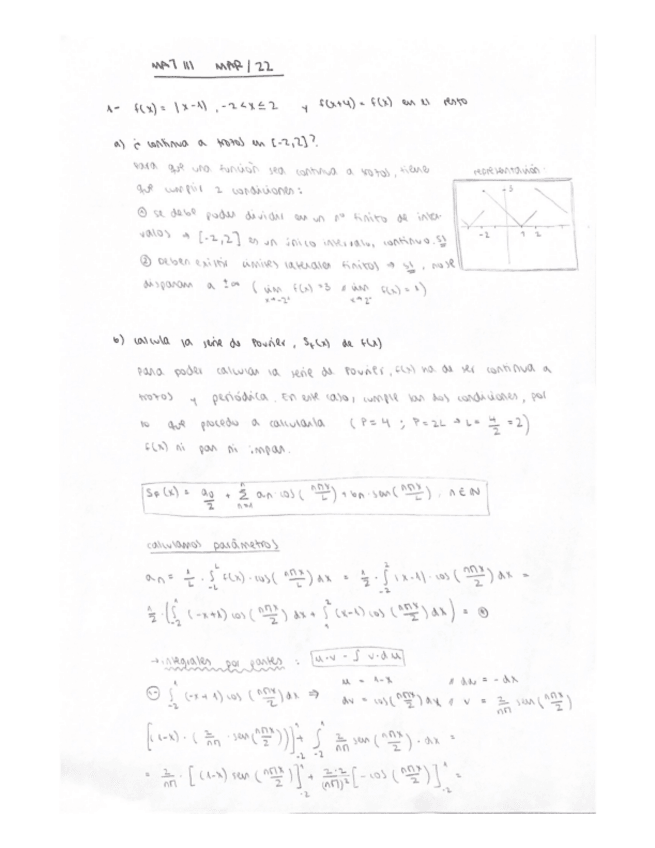 MAT III MAR/22
1- f(x) = |x-1|, -2<x≤2 y f(x+4) = f(x) en el resto
a) ¿continua a trozos en [-2,2]?
Para que una función sea continua a trozos, tiene
que cumplir 2 condiciones:
① Se debe poder dividir en un nº finito de inter-
valos → [-2,2] es un único intervalo, continuo. Sí
② Deben existir límites laterales finitos → sí, no se
disparan a ±∞ ( lim x→-2⁺ f(x) = 3 lim x→2⁻ f(x) = 1)
representación:
3
-2 1 2
b) calcula la serie de Fourier, SF(x) de f(x)
Para poder calcular la serie de Fourier, f(x) ha de ser continua a
trozos y periódica. En este caso, cumple las dos condiciones, por
lo que procedo a calcularla (P=4 ; P=2L → L = 4/2 = 2)
f(x) ni par ni impar.
SF(x) = a0/2 + Σ an · cos(nπx/L) + bn · sen(nπx/L), n∈N
calculamos parámetros
an = 1/L · ∫_{-L}^{L} f(x) · cos(nπx/L) dx = 1/2 · ∫_{-2}^{2} |x-1| · cos(nπx/2) dx =
1/2 · (∫_{-2}^{1} (-x+1) cos(nπx/2) dx + ∫_{1}^{2} (x-1) cos(nπx/2) dx) =
→ integrales por partes : u·v - ∫ v·du
∫_{-2}^{1} (-x+1) cos(nπx/2) dx ⇒ u = 1-x du = -dx
dv = cos(nπx/2) dx v = 2/nπ sen(nπx/2)
[(1-x) · (2/nπ · sen(nπx/2))]_{-2}^{1} + ∫_{-2}^{1} 2/nπ sen(nπx/2) · dx =
= 2/nπ · [(1-x) sen(nπx/2)]_{-2}^{1} + 2·2/(nπ)² [-cos(nπx/2)]_{-2}^{1} =